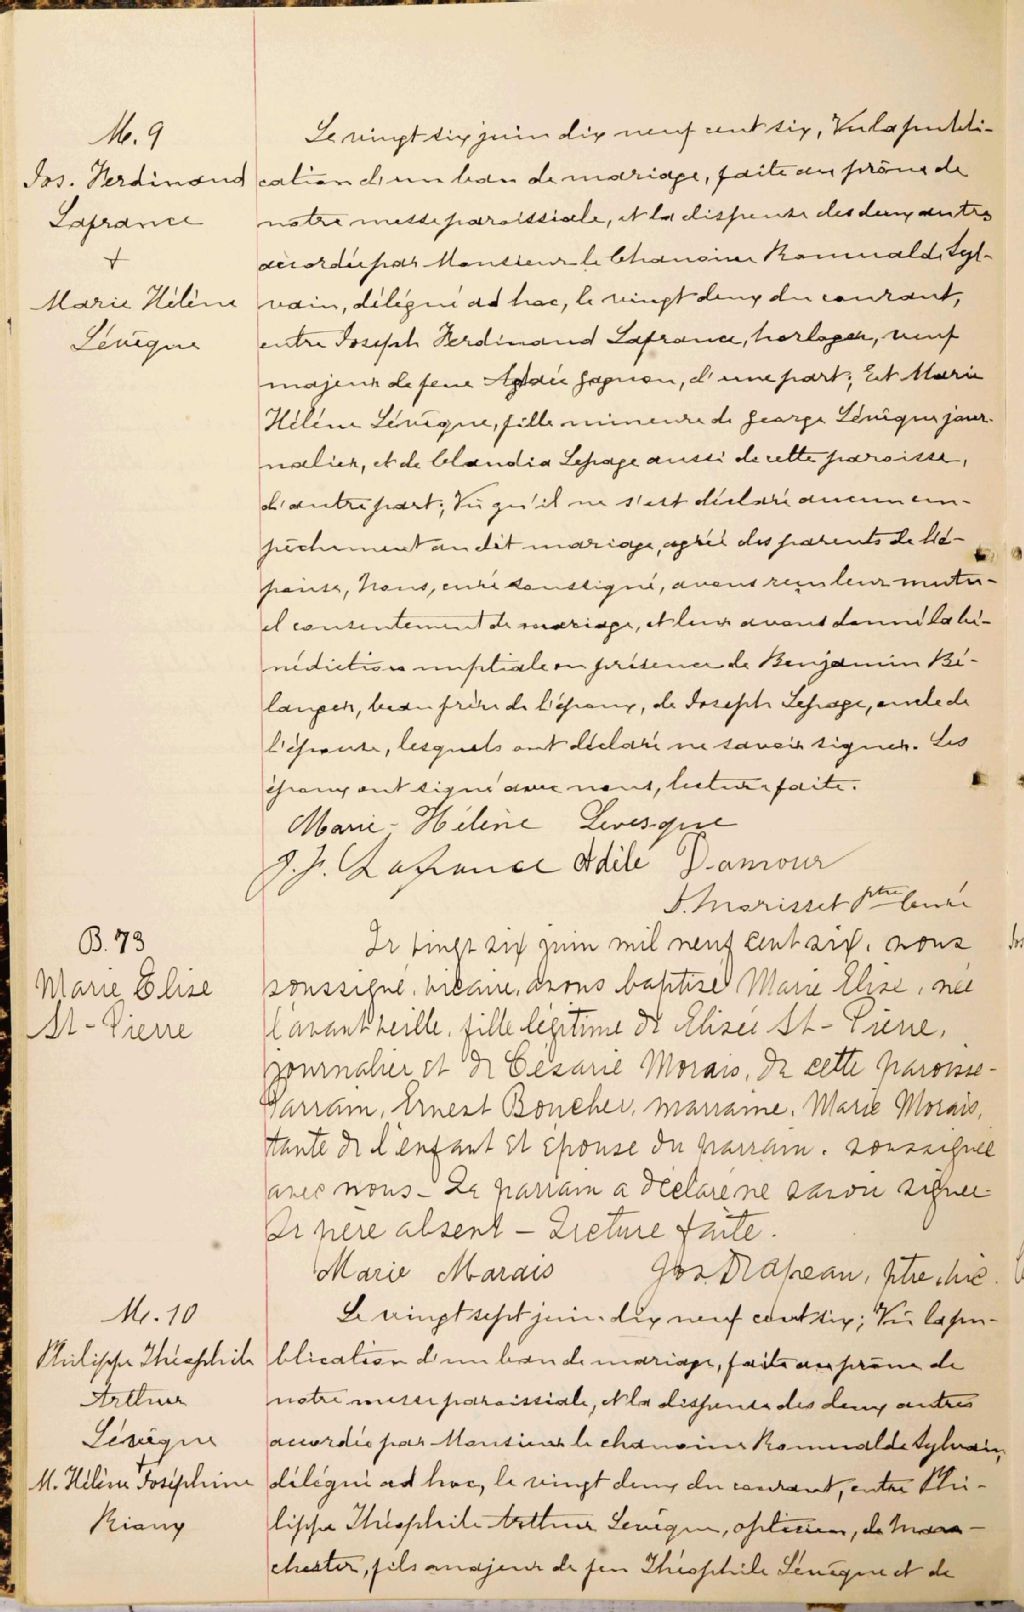 M. 9
Jos. Ferdinand
Lafrance
+
Marie Hélène
Lévêque
Le vingt six juin dix neuf cent six, Vu la publi-
cation d'un ban de mariage, faite au prône de
notre messe paroissiale, et la dispense des deux autres
accordée par Monsieur le Chanoine Romuald Syl-
vain, délégué ad hoc, le vingt deux du courant,
entre Joseph Ferdinand Lafrance, horloger, veuf
majeur de feue Aglaée Gagnon, d'une part; Et Marie
Hélène Lévêque, fille mineure de George Lévêque jour-
nalier, et de Claudia Lepage aussi de cette paroisse,
d'autre part; Vu qu'il ne s'est déclaré aucun em-
pêchement au dit mariage, agréé des parents de l'é-
pouse, Nous, curé soussigné, avons reçu leur mutu-
el consentement de mariage, et leur avons donné la bé-
nédiction nuptiale en présence de Benjamin Bé-
langer, beau frère de l'époux, de Joseph Lepage, oncle de
l'épouse, lesquels ont déclaré ne savoir signer. Les
époux ont signé avec nous, lecture faite.
Marie-Hélène Levesque
J. F. Lafrance Adèle Damour
D. Morisset ptre Curé
B. 73
Marie Elise
St-Pierre
Le vingt six juin mil neuf cent six, nous
soussigné, vicaire, avons baptisé Marie Elise, née
l'avant veille, fille légitime de Elisée St-Pierre,
journalier et de Césarie Morais, de cette paroisse-
Parrain, Ernest Boucher, marraine, Marie Morais,
tante de l'enfant et épouse du parrain, soussignée
avec nous- Le parrain a déclaré ne savoir signer-
Le père absent – Lecture faite.
Marie Marais Jos. Drapeau, ptre, vic.
M. 10
Philippe Théophile
Arthur
Lévêque
+
M. Hélène Joséphine
Rioux
Le vingt sept juin dix neuf cent six; Vu la pu-
blication d'un ban de mariage, faite au prône de
notre messe paroissiale, et la dispense des deux autres
accordée par Monsieur le chanoine Romualde Sylvain,
délégué ad hoc, le vingt deux du courant, entre Phi-
lippe Théophile Arthur Lévêque, opticien, de Man-
chester, fils majeur de feu Théophile Lévêque et de